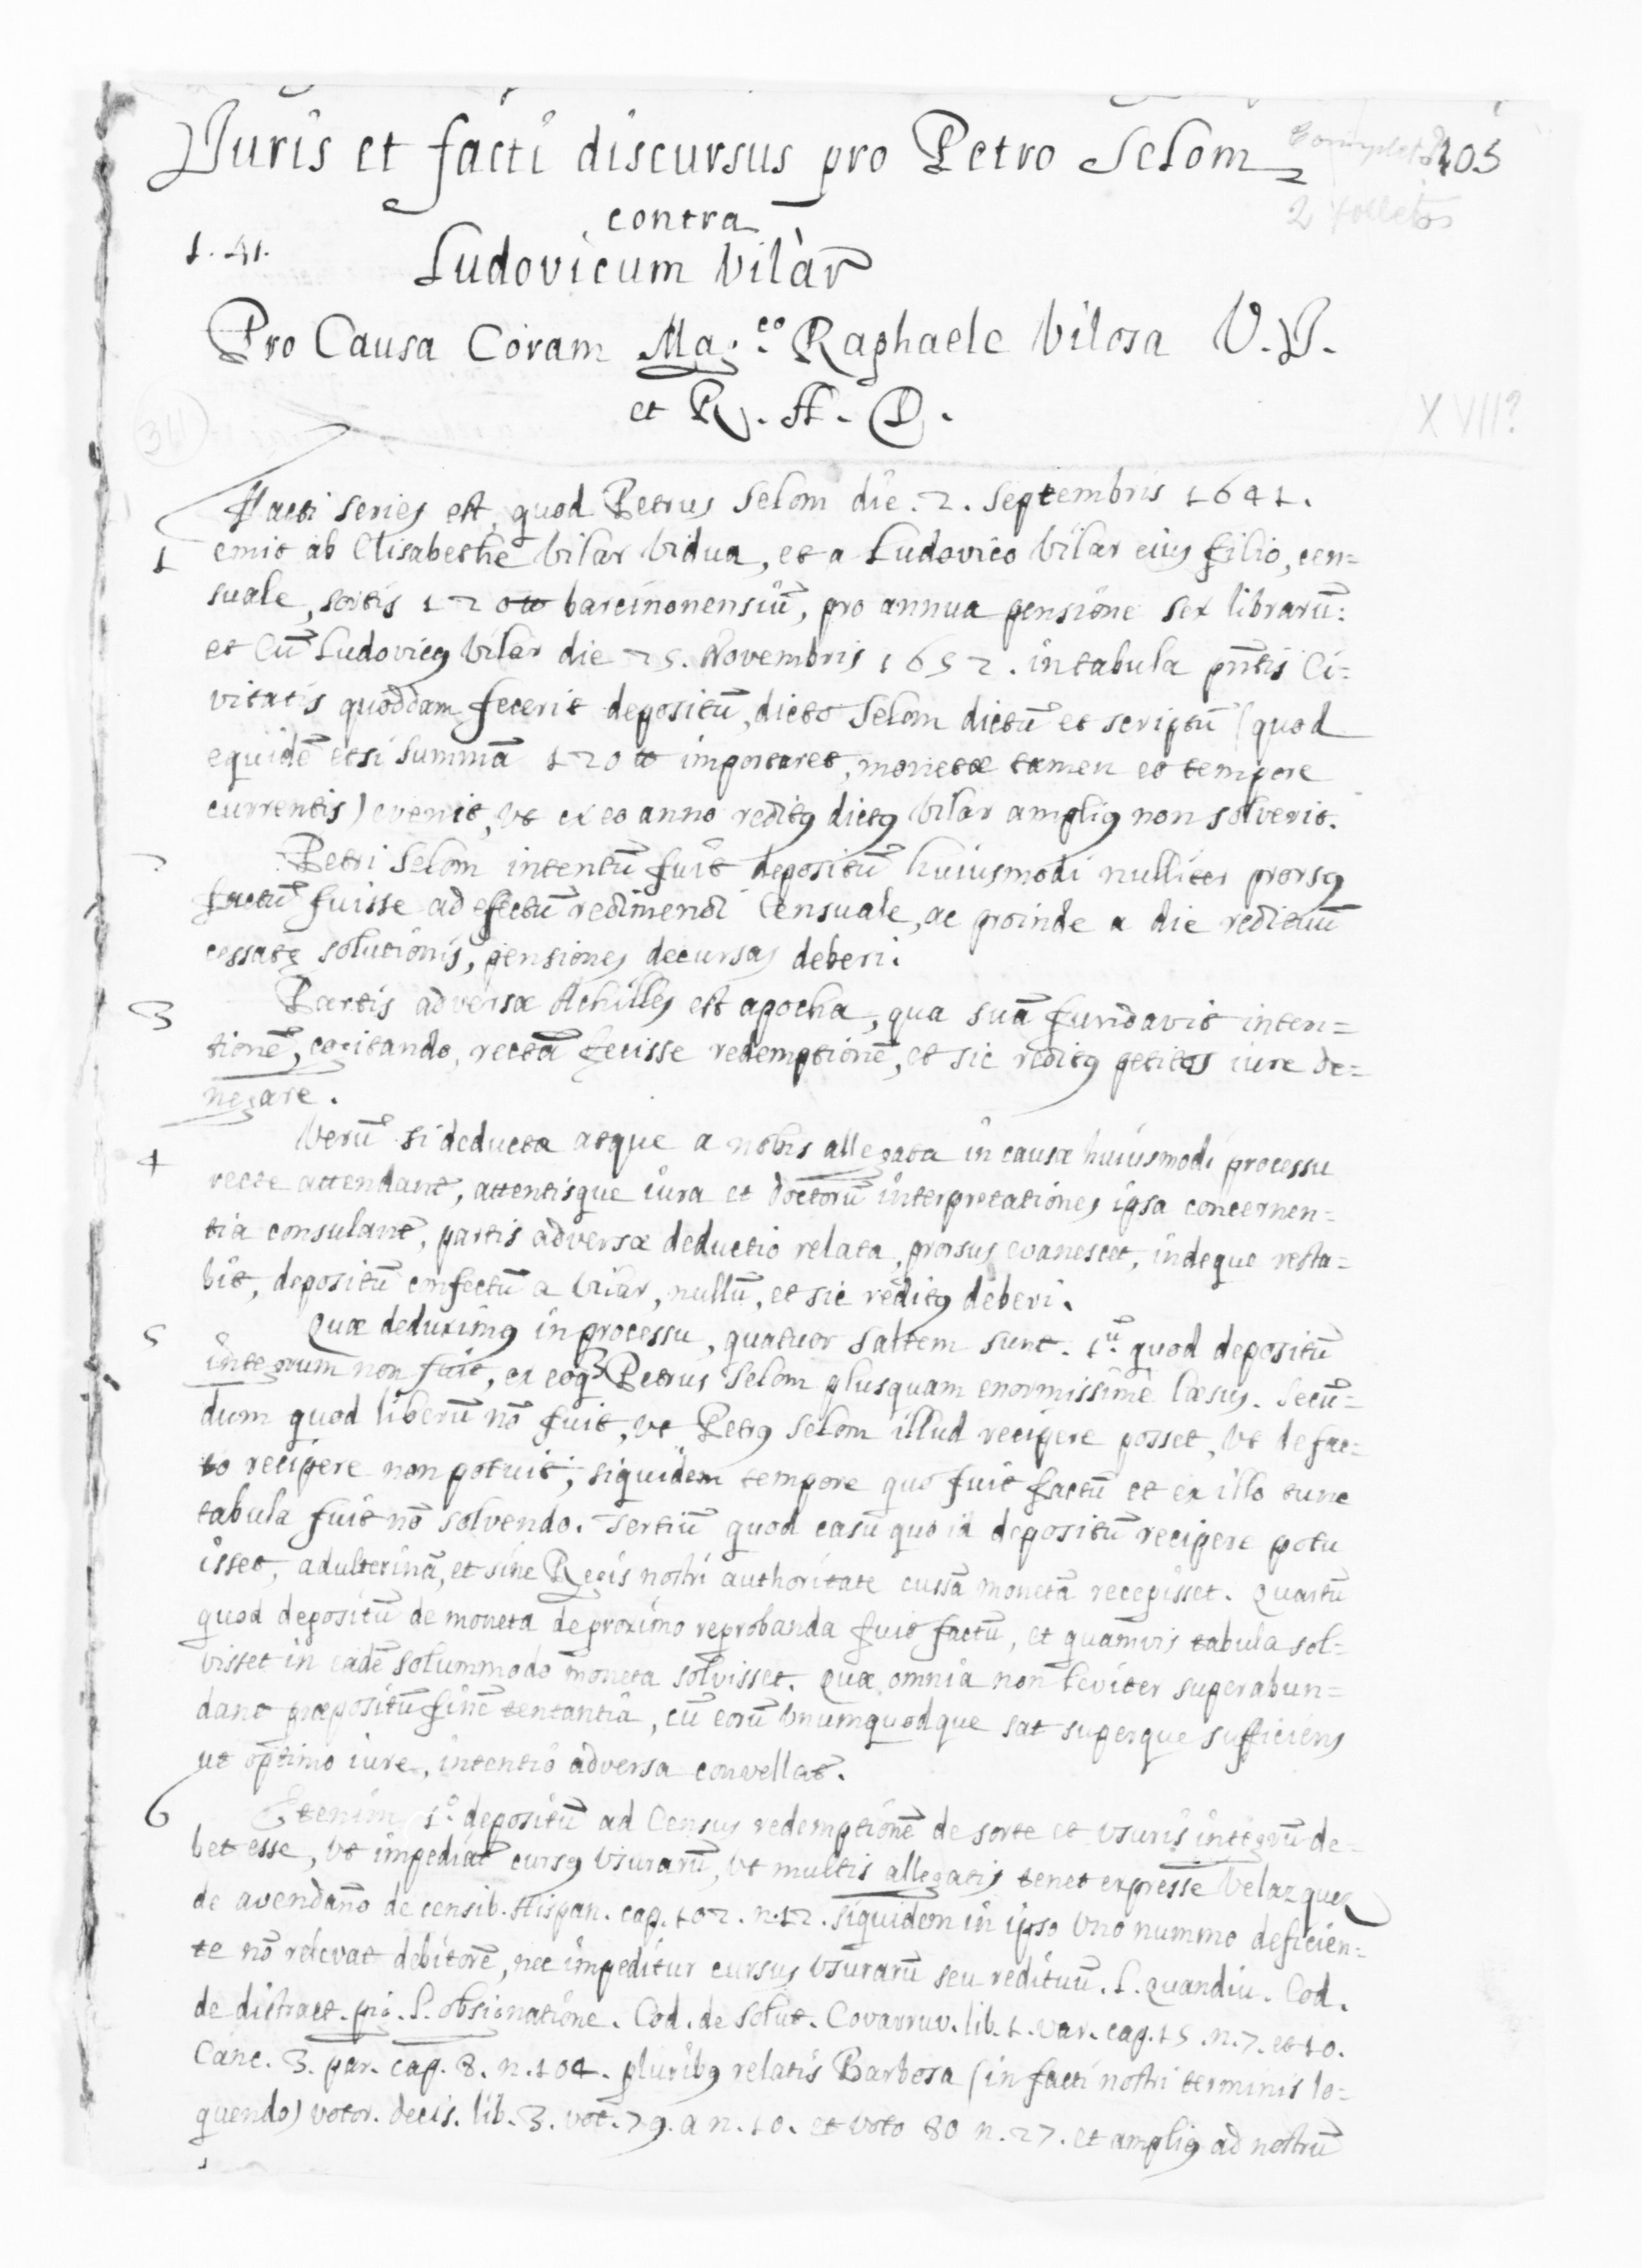 Juris et facti discursus pro Petro Selom
405
2 folletos
contra
1. 41.
Ludovicum Vilàr
Pro Causa Coram Mag.co Raphaele Vilosa U.J.
et R. A. D.
XVII?
341
Facti series est, quod Petrus Selom die. 2. Septembris 1641.
1 emit ab Elisabethe Vilar Vidua, et a Ludovico Vilar eius filio, cen=
suale, sortis 120 ℔ barcinonensiū, pro annua pensione sex librarū:
et Cū Ludovicꝰ Vilar die 25. Novembris 1652. in tabula pn̄tis Ci=
vitatis quoddam fecerit depositū, dicto Selom dictū et scriptū (quod
equidē etsi summā 120 ℔ importaret, monetæ tamen eo tempore
currentis) evenit, ut ex eo anno reditꝰ dictꝰ Vilar ampliꝰ non solverit.
2 Petri Selom intentū fuit depositū huiusmodi nulliter prorsꝰ
factū fuisse ad effectū redimendi Censuale, ac proinde a die redituū
cessatę solutionis, pensiones decursas deberi.
3 Partis adversæ Achilles est apocha, qua suā fundavit inten=
tionē, cogitando, rectā fecisse redemptionē, et sic reditꝰ petitos iure de=
negare.
4 Verū si deducta atque a nobis allegata in causæ huiusmodi processu
recte attendant̄, attentisque iura et doctorū interpretationes ipsa concernen=
tia consulant̄, partis adversæ deductio relata, prorsus evanescet, indeque resta=
bit, depositū confectū a Vilar, nullū, et sic reditꝰ deberi.
5 Quæ deduximꝰ in processu, quatuor saltem sunt. 1.ū quod depositū
integrum non fuit, ex eoq3 Petrus Selom plusquam enormissimè læsus. Secū=
dum quod liberū nō fuit, ut Petrꝰ Selom illud recipere posset, ut de fac=
to recipere non potuit; siquidem tempore quo fuit factū et ex illo tunc
tabula fuit nō solvendo. Tertiū quod casū quo id depositū recipere potu
isset, adulterinā, et sine Regis nostri authoritate cussā monetā recepisset. Quartū
quod depositū de moneta de proximo reprobanda fuit factū, et quamvis tabula sol=
visset in eadē solummodo moneta solvisset. Quæ omnia non leviter superabun=
dant præpositū finē tentantia, cū eorū unumquodque sat superque sufficiens
ut optimo iure, intentio adversa convellat̄.
6 Etenim 1.º depositū ad Census redemptionē de sorte et usuris integrū de=
bet esse, ut impediat̄ cursꝰ usurarū, ut multis allegatis tenet expresse Velazquez
de avendaño de censib. Hispan. cap. 102. n. 12. siquidem in ipso uno nummo deficien=
te nō relevat debitorē, nec impeditur cursus usurarū seu redituū. L. quandiu. Cod.
de distract. pig. L. obsignatione. Cod. de solut. Covarruv. lib. 1. var. cap. 15. n. 7. et 10.
Canc. 3. par. cap. 8. n. 104. pluribꝰ relatis Barbosa (in facti nostri terminis lo=
quendo) votor. decis. lib. 3. vot. 79. a n. 10. et voto 80 n. 27. et ampliꝰ ad nostrū